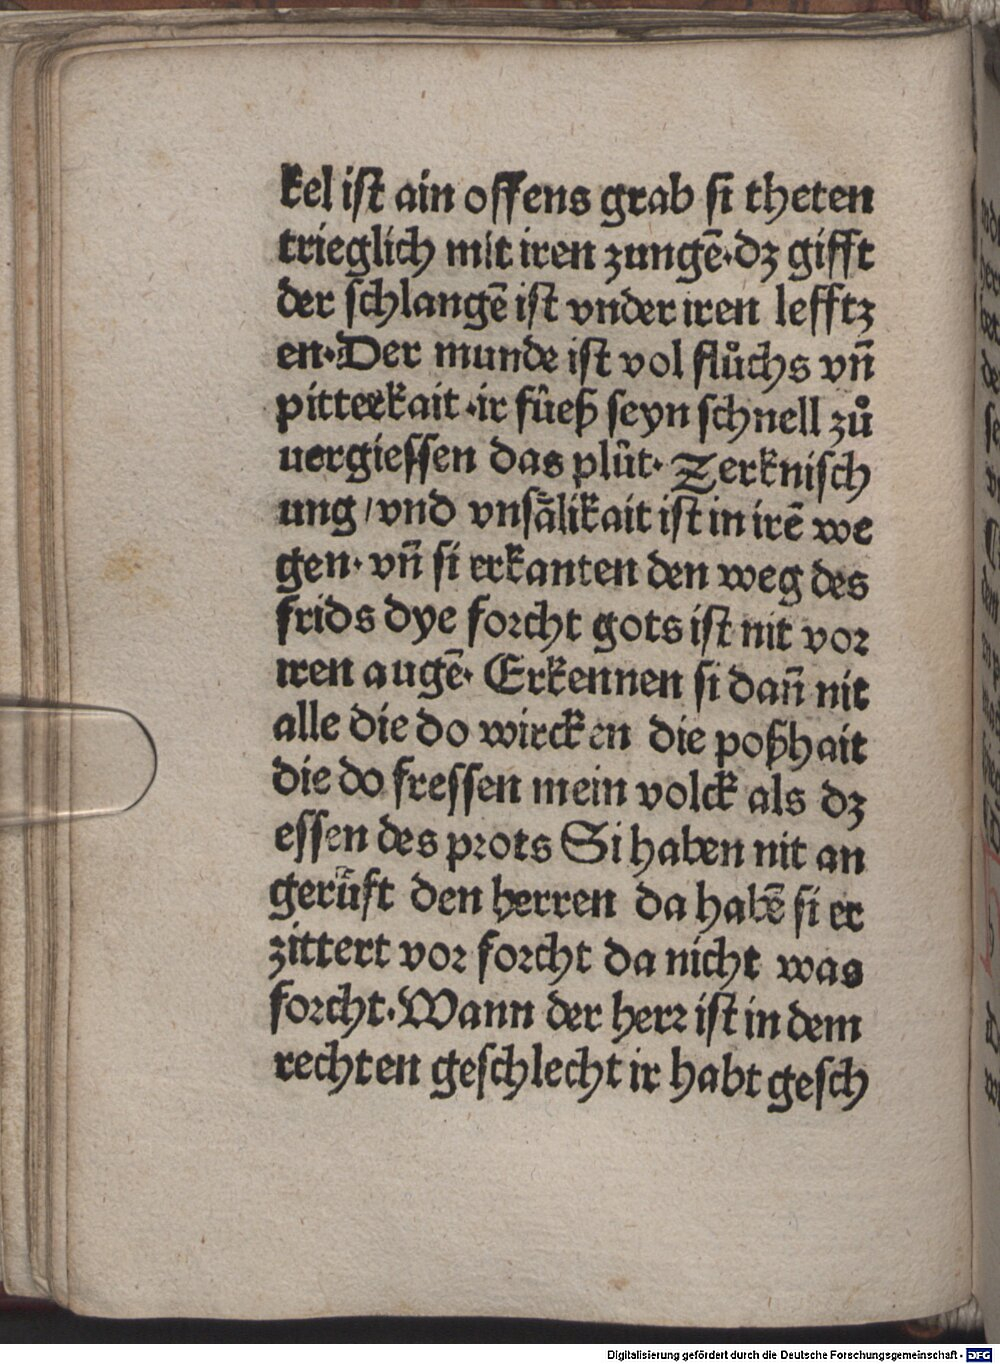 kel ist ain offens grab si theten
trieglich mit iren zungē·dz gifft
der schlangē ist vnder iren lefftz
en·Der munde ist vol flůchs vn̄
pitterkait·ir fûeß seyn schnell zů
uergiessen das plût·Zerknisch
ung/vnd vnsälikait ist in irē we
gen·vn̄ si erkanten den weg des
frids dye forcht gots ist nit vor
iren augē·Erkennen si dan̄ nit
alle die do wircken die poßhait
die do fressen mein volck als dz
essen des prots Si haben nit an
gerüft den herren da habē si er
zittert vor forcht da nicht was
forcht·Wann der herr ist in dem
rechten geschlecht ir habt gesch
Digitalisierung gefördert durch die Deutsche Forschungsgemeinschaft - DFG